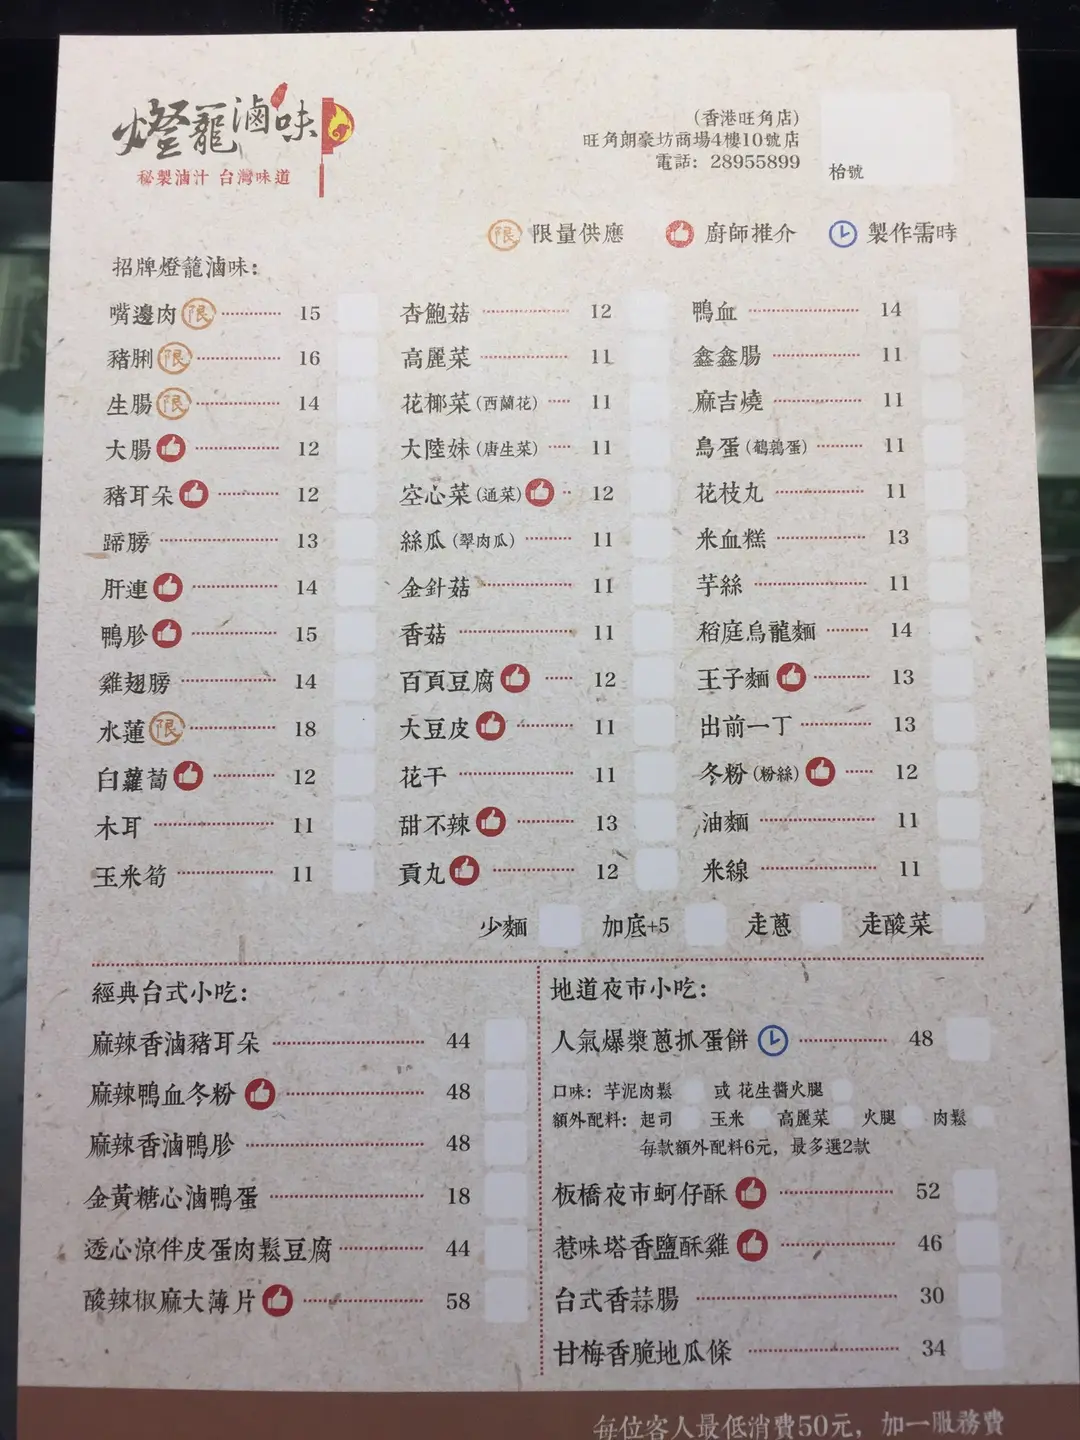 燈籠滷味
秘製滷汁 台灣味道
(香港旺角店)
旺角朗豪坊商場4樓10號店
電話: 28955899
枱號
限 限量供應 廚師推介 製作需時
招牌燈籠滷味:
嘴邊肉 限 15
豬脷 限 16
生腸 限 14
大腸 12
豬耳朵 12
蹄膀 13
肝連 14
鴨胗 15
雞翅膀 14
水蓮 限 18
白蘿蔔 12
木耳 11
玉米筍 11
杏鮑菇 12
高麗菜 11
花椰菜(西蘭花) 11
大陸妹(唐生菜) 11
空心菜(通菜) 12
絲瓜(翠肉瓜) 11
金針菇 11
香菇 11
百頁豆腐 12
大豆皮 11
花干 11
甜不辣 13
貢丸 12
鴨血 14
鑫鑫腸 11
麻吉燒 11
鳥蛋(鵪鶉蛋) 11
花枝丸 11
米血糕 13
芋絲 11
稻庭烏龍麵 14
王子麵 13
出前一丁 13
冬粉(粉絲) 12
油麵 11
米線 11
少麵 加底+5 走蔥 走酸菜
經典台式小吃:
麻辣香滷豬耳朵 44
麻辣鴨血冬粉 48
麻辣香滷鴨胗 48
金黃糖心滷鴨蛋 18
透心涼伴皮蛋肉鬆豆腐 44
酸辣椒麻大薄片 58
地道夜市小吃:
人氣爆漿蔥抓蛋餅 48
口味: 芋泥肉鬆 或 花生醬火腿
額外配料: 起司 玉米 高麗菜 火腿 肉鬆
每款額外配料6元, 最多選2款
板橋夜市蚵仔酥 52
惹味塔香鹽酥雞 46
台式香蒜腸 30
甘梅香脆地瓜條 34
每位客人最低消費50元, 加一服務費